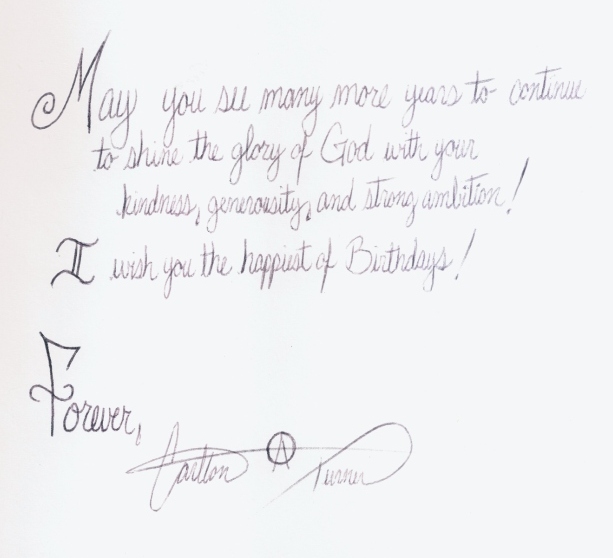 May you see many more years to continue
to shine the glory of God with your
kindness, generousity, and strong ambition!
I wish you the happiest of Birthdays!
Forever,
Carlton A Turner